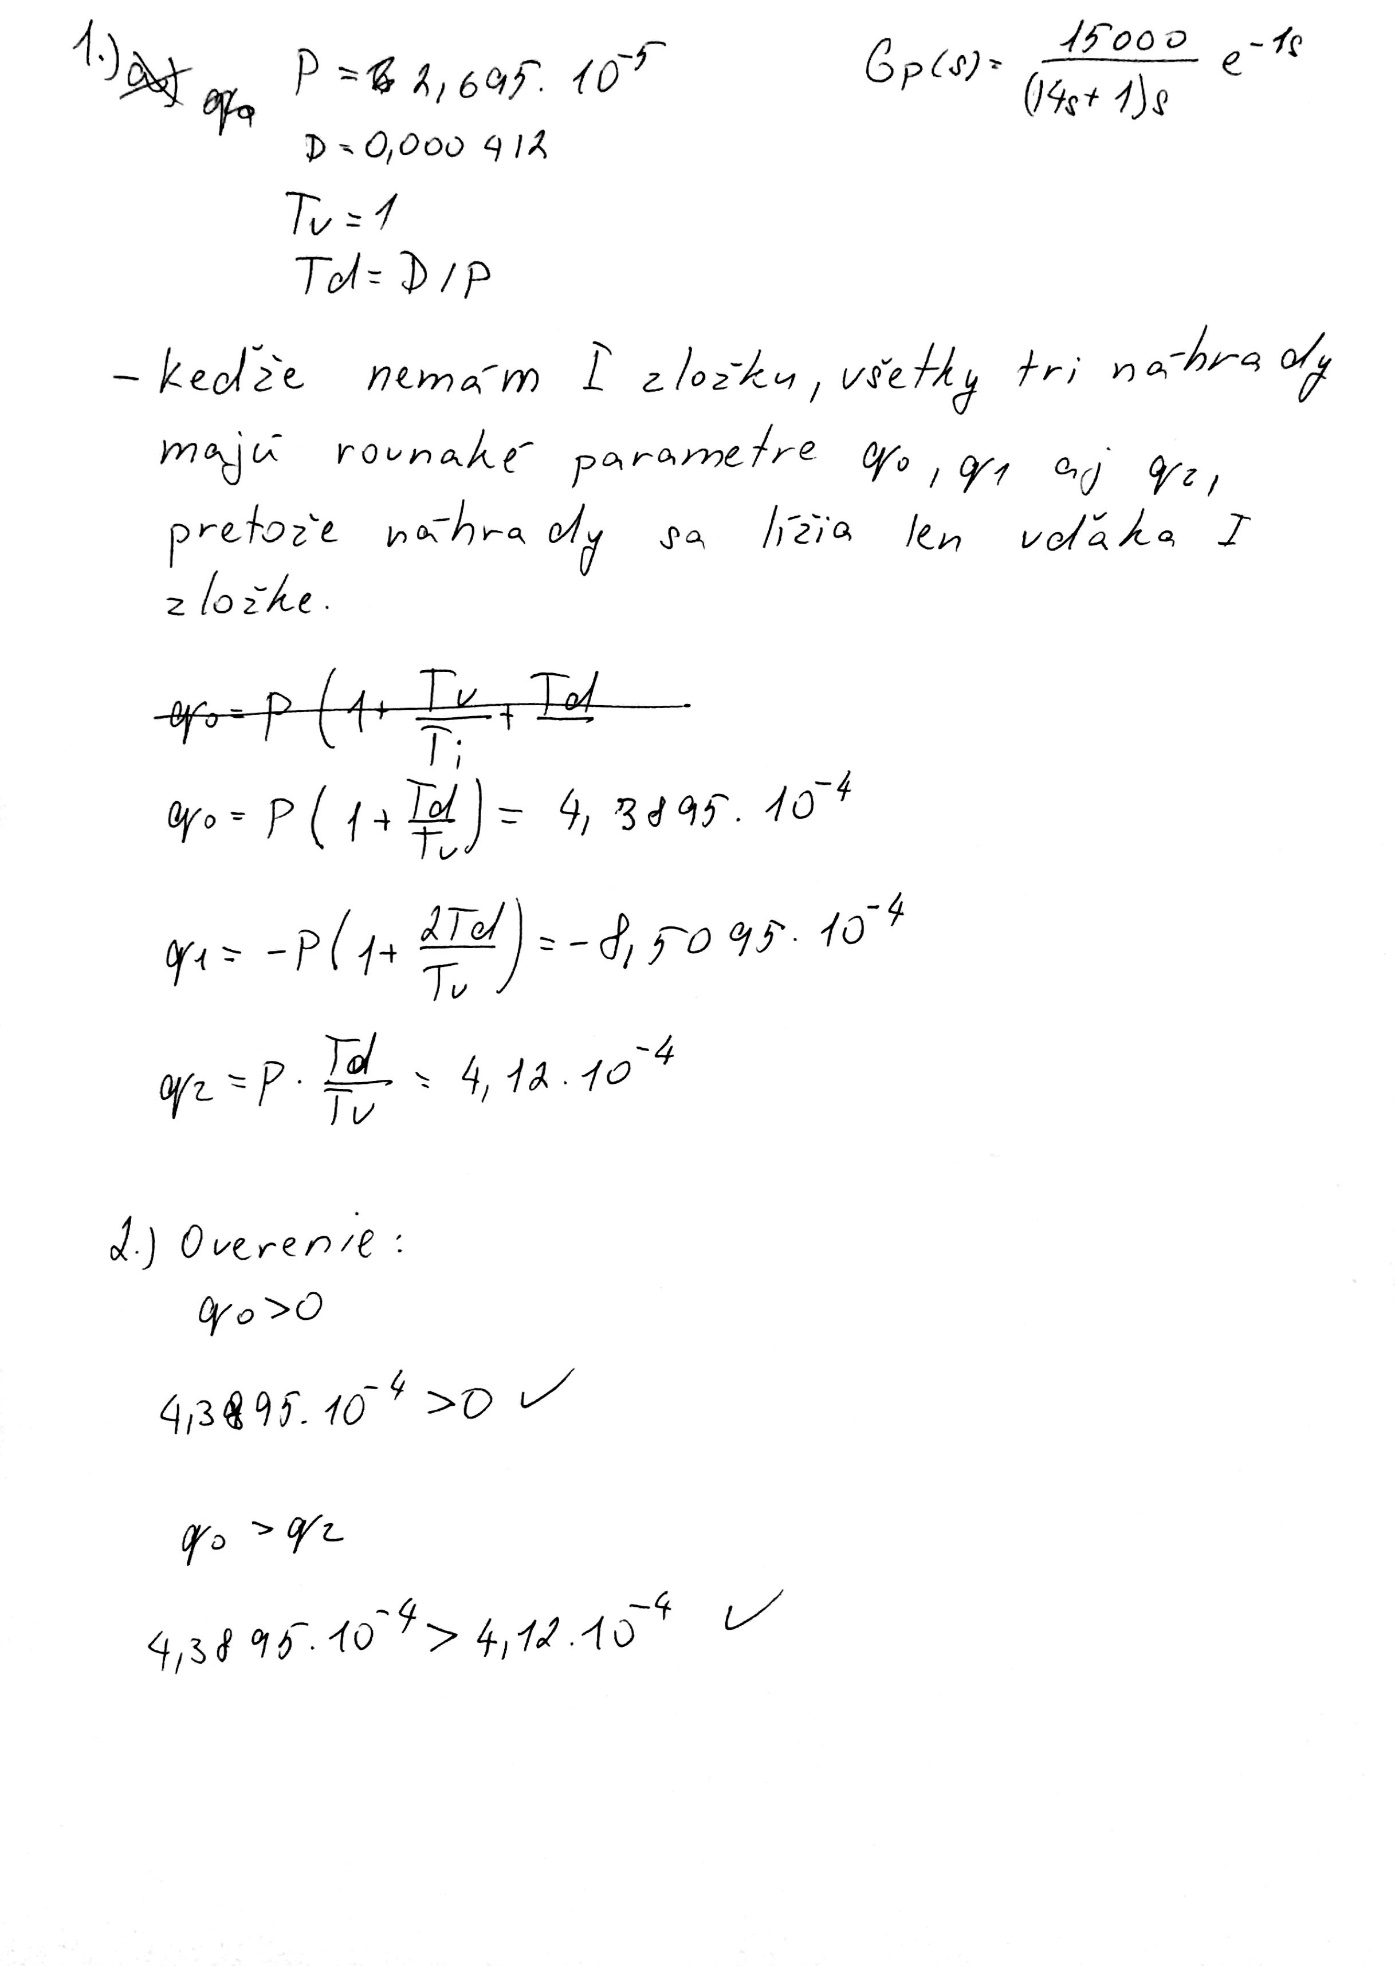 1.) P = 2,695. 10^-5
Gp(s) = 15000 / (14s+1)s e^-1s
D = 0,000 412
Tv = 1
Td = D/P
- kedže nemám I zložku, všetky tri náhrady
majú rovnaké parametre q0, q1 aj q2,
pretože náhrady sa lížia len vďaka I
zložke.
q0 = P (1 + Tv/Ti + Td
q0 = P(1 + Td/Tv) = 4,3895. 10^-4
q1 = -P(1 + 2Td/Tv) = -8,5095. 10^-4
q2 = P . Td/Tv = 4,12. 10^-4
2.) Overenie:
q0 > 0
4,3895. 10^-4 > 0 ✓
q0 > q2
4,3895. 10^-4 > 4,12. 10^-4 ✓